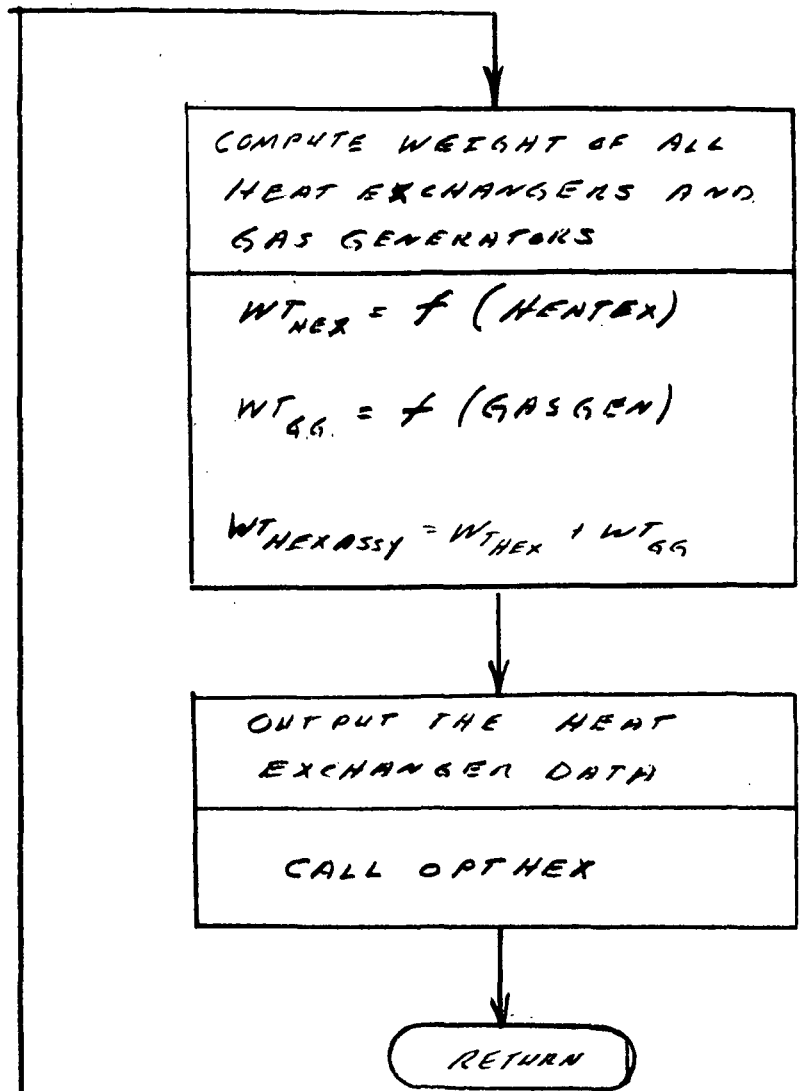 COMPUTE WEIGHT OF ALL
HEAT EXCHANGERS AND
GAS GENERATORS
WT_HEX = f (HEATEX)
WT_GG = f (GASGEN)
WT_HEXASSY = WT_HEX + WT_GG
OUTPUT THE HEAT
EXCHANGER DATA
CALL OPTHEX
RETURN